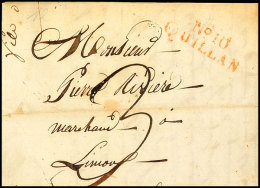 No. 10
QUILLAN
Monsieur
Pierre Rivière
marchand à
Limoux
3